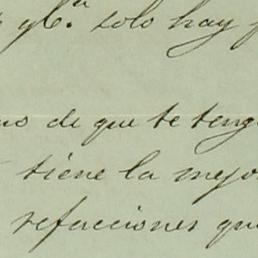 solo hay
no de que te teng
tiene la mejo
refacciones qu